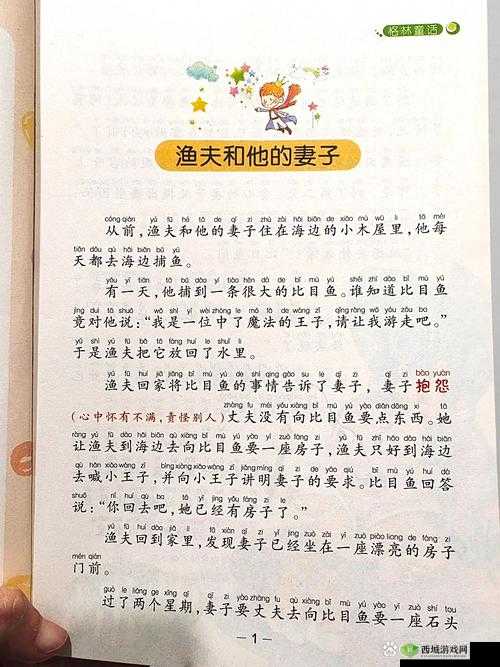 格林童话
渔夫和他的妻子
cóng qián yú fū hé tā de qī zi zhù zài hǎi biān de xiǎo mù wū li tā měi
从前，渔夫和他的妻子住在海边的小木屋里，他每
tiān dōu qù hǎi biān bǔ yú
天都去海边捕鱼。
yǒu yī tiān tā bǔ dào yī tiáo hěn dà de bǐ mù yú shéi zhī dào bǐ mù yú
有一天，他捕到一条很大的比目鱼。谁知道比目鱼
jìng duì tā shuō wǒ shì yī wèi zhòng le mó fǎ de wáng zǐ qǐng ràng wǒ yóu zǒu ba
竟对他说：“我是一位中了魔法的王子，请让我游走吧。”
yú shì yú fū bǎ tā fàng huí le shuǐ li
于是渔夫把它放回了水里。
yú fū huí jiā jiāng bǐ mù yú de shì qing gào su le qī zi qī zi bào yuàn
渔夫回家将比目鱼的事情告诉了妻子，妻子抱怨
zhàng fu méi yǒu xiàng bǐ mù yú yào diǎn dōng xi tā
（心中怀有不满，责怪别人）丈夫没有向比目鱼要点东西。她
ràng yú fū dào hǎi biān qù xiàng bǐ mù yú yào yī zuò fáng zi yú fū zhǐ hǎo dào hǎi biān
让渔夫到海边去向比目鱼要一座房子，渔夫只好到海边
qù hǎn xiǎo wáng zǐ bìng xiàng wáng zǐ jiǎng míng qī zi de yāo qiú bǐ mù yú huí dá
去喊小王子，并向小王子讲明妻子的要求。比目鱼回答
shuō nǐ huí qù ba tā yǐ jīng yǒu fáng zi le
说：“你回去吧，她已经有房子了。”
yú fū huí dào jiā li fā xiàn qī zi yǐ jīng zuò zài yī zuò piào liang de fáng zi
渔夫回到家里，发现妻子已经坐在一座漂亮的房子
mén qián
门前。
guò le liǎng gè xīng qī qī zi yào zhàng fu qù xiàng bǐ mù yú yào yī zuò shí tou
过了两个星期，妻子要丈夫去向比目鱼要一座石头
1
西城游戏网